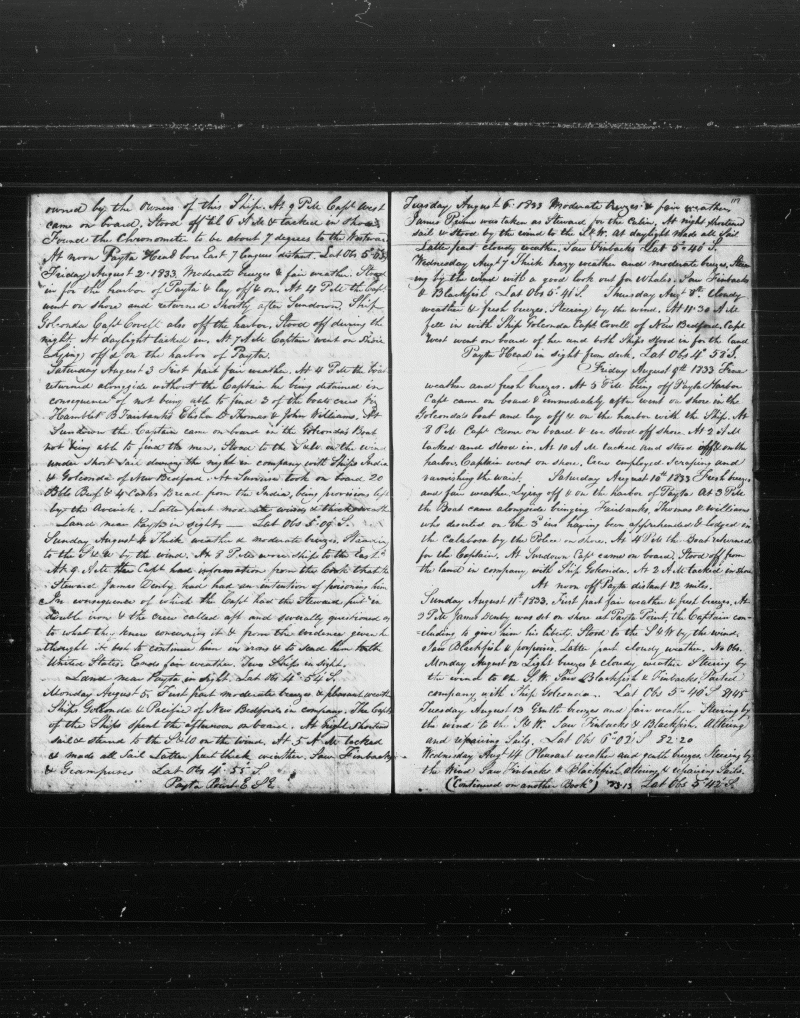 owned by the owners of this Ship. At 9 PM Capt West
came on board. Stood off til 6 AM & tacked in shore
Found the Chronometer to be about 7 degrees to the Westward
At noon Payta Head bore East 7 leagues distant. Lat Obs 5°03
Friday August 2nd 1833. Moderate breezes & fair weather. Stood
in for the harbor of Payta & lay off & on. At 4 PM the Capt
went on shore and returned shortly after Sundown. Ship
Golconda Capt Covell also off the harbor. Stood off during the
night. At daylight tacked in. At 7 AM Captain went on shore
Lying off & on the harbor of Payta.
Saturday August 3 First part fair weather. At 4 PM the boat
returned alongside without the Captain he being detained in
consequence of not being able to find 3 of the boats crew viz
Hamblet B Fairbanks Elisha D Thomas & John Williams. At
Sundown the Captain came on board in the Golconda's Boat
not being able to find the men. Stood to the SW on the wind
under Short Sail during the night in company with Ships India
& Golconda of New Bedford. At Sunrise took on board 20
Bbls Beef & 4 Casks Bread from the India, being provisions left
by the Averick. Latter part moderate winds & thick weather
Land near Payta in sight — Lat Obs 5°09 S.
Sunday August 4 Thick weather & moderate breezes. Steering
to the SW by the wind. At 8 PM wore ship to the East
At 9 AM the Capt had information from the Cook that the
Steward James Denby had had an intention of poisoning him
In consequence of which the Capt had the Steward put in
double irons & the crew called aft and severally questioned as
to what they knew concerning it & from the evidence given he
thought it best to continue him in irons & to send him to the
United States. Ends fair weather. Two Ships in sight.
Land near Payta in sight. Lat Obs 4°54 S.
Monday August 5 First part moderate breezes & pleasant weather
Ships Golconda & Pacific of New Bedford in company. The Capts
of the Ships spent the afternoon on board. At night shortened
sail & steered to the SW on the wind. At 5 AM tacked
& made all Sail Latter part thick weather. Saw Finbacks
& Grampuses Lat Obs 4°55 S.
Payta Point ESE
117
Tuesday August 6th 1833 Moderate breezes & fair weather
James was taken as Steward for the Cabin. At night shortened
sail & stood by the wind to the SW. At daylight made all Sail
Latter part cloudy weather. Saw Finbacks Lat 5°40 S.
Wednesday Augt 7 Thick hazy weather and moderate breezes. Steer
ing by the wind with a good look out for Whales. Saw Finbacks
& Blackfish Lat Obs 5°41 S. Thursday Augt 8th. Cloudy
weather & fresh breezes. Steering by the wind. At 11.30 AM
fell in with Ship Golconda Capt Covell of New Bedford. Capt
West went on board of her and both Ships stood in for the land
Payta Head in sight from deck. Lat Obs 4°58 S.
Friday August 9th 1833 Fine
weather and fresh breezes. At 3 PM being off Payta Harbor
Capt came on board & immediately after went on shore in the
Golconda's boat and lay off & on the harbor with the Ship. At
8 PM Capt came on board & we stood off shore. At 2 AM
tacked and stood in. At 10 AM tacked and stood off & on the
harbor. Captain went on shore. Crew employed Scraping and
varnishing the waist. Saturday August 10th 1833 Fresh breezes
and fair weather. Lying off & on the harbor of Payta At 3 PM
the Boat came alongside bringing Fairbanks, Thomas & Williams
who deserted on the 3 inst having been apprehended & lodged in
the Calaboza by the Police on shore. At 4 PM the Boat returned
for the Captain. At Sundown Capt came on board. Stood off from
the land in company with Ship Golconda. At 2 AM tacked in shore
At noon off Payta distant 12 miles.
Sunday August 11th 1833. First part fair weather & fresh breezes. At
3 PM James Denby was set on shore at Payta Point, the Captain con-
cluding to give him his liberty. Stood to the SW by the wind.
Saw Blackfish & porpoises. Latter part cloudy weather. No Obs.
Monday August 12 Light breezes & cloudy weather Steering by
the wind to the S.W. Saw Blackfish & Finbacks. Parted
company with Ship Golconda. Lat Obs 5°40 S 81 45
Tuesday August 13 Gentle breezes and fair weather Steering by
the wind to the SW. Saw Finbacks & Blackfish. Altering
and repairing Sails. Lat Obs 6°03 S 82.20
Wednesday Augt 14 Pleasant weather and gentle breezes. Steering by
the Wind Saw Finbacks & Blackfish, altering & repairing Sails.
(Continued on another Book) 83.13 Lat Obs 5°42 S.